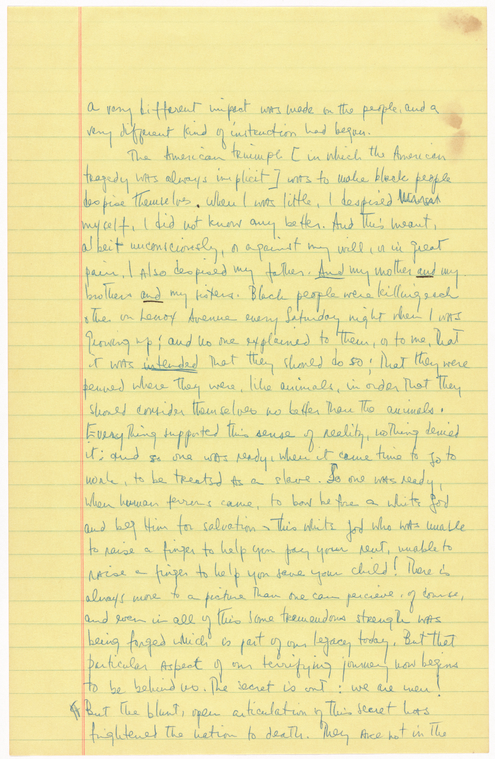 a very different impact was made on the people, and a
very different kind of instruction had begun.
The American triumph [in which the American
tragedy was always implicit] was to make black people
despise themselves. When I was little, I despised
myself, I did not know any better. And this meant,
albeit unconsciously, or against my will, or in great
pain, I also despised my father. And my mother and my
brothers and my sisters. Black people were killing each
other on Lenox Avenue every Saturday night when I was
growing up; and no one explained to them, or to me, that
it was intended that they should do so; that they were
penned where they were, like animals, in order that they
should consider themselves no better than the animals.
Everything supported this sense of reality, nothing denied
it: and so one was ready, when it came time to go to
work, to be treated as a slave. So one was ready,
when human terrors came, to bow before a white God
and beg Him for salvation - this white God who was unable
to raise a finger to help you pay your rent, unable to
raise a finger to help you save your child! There is
always more to a picture than one can percieve, of course,
and even in all of this some tremendous strength was
being forged which is part of our legacy today. But that
particular aspect of our terrifying journey now begins
to be behind us. The secret is out: we are men!
But the blunt, open articulation of this secret has
frightened the nation to death. They are not in the